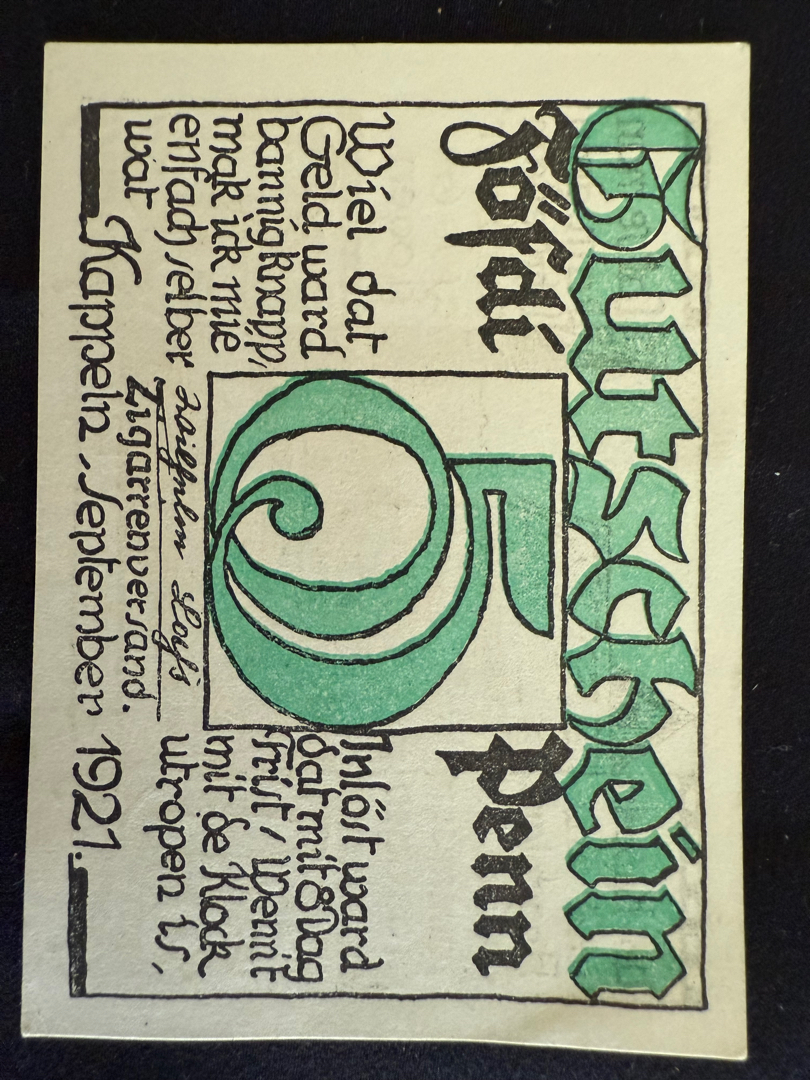 Gutschein
Föfdi Penn
50
Wiel dat
Geld ward
bannig knapp,
mak ick mie
enfach selber
wat
Zigarrenversand.
Inlöst ward
dat mit 8 Dag
Frist, wennt
mit de Klock
utropen is,
Kappeln, September 1921.